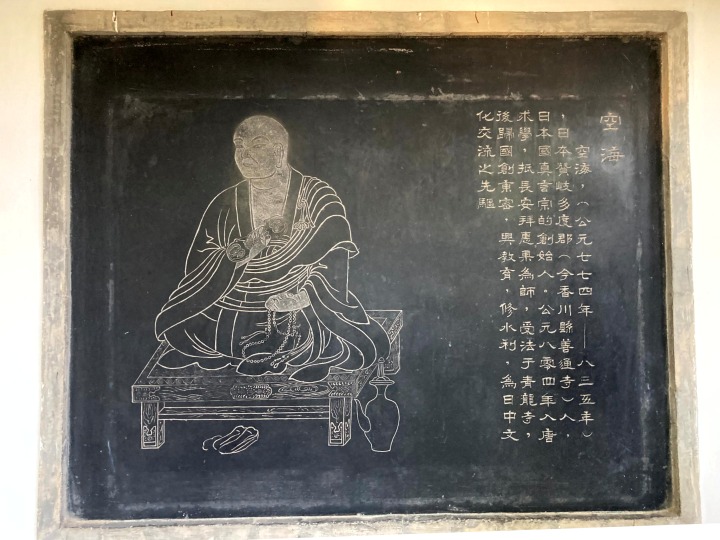 空海
空海，（公元七七四年——八三五年）
，日本贊岐多度郡（今香川縣善通寺）人，
日本國真言宗的創始人。公元八零四年入唐
求學，抵長安拜惠果為師，受法于青龍寺，
後歸國創東密，興教育，修水利，為日中文
化交流之先驅